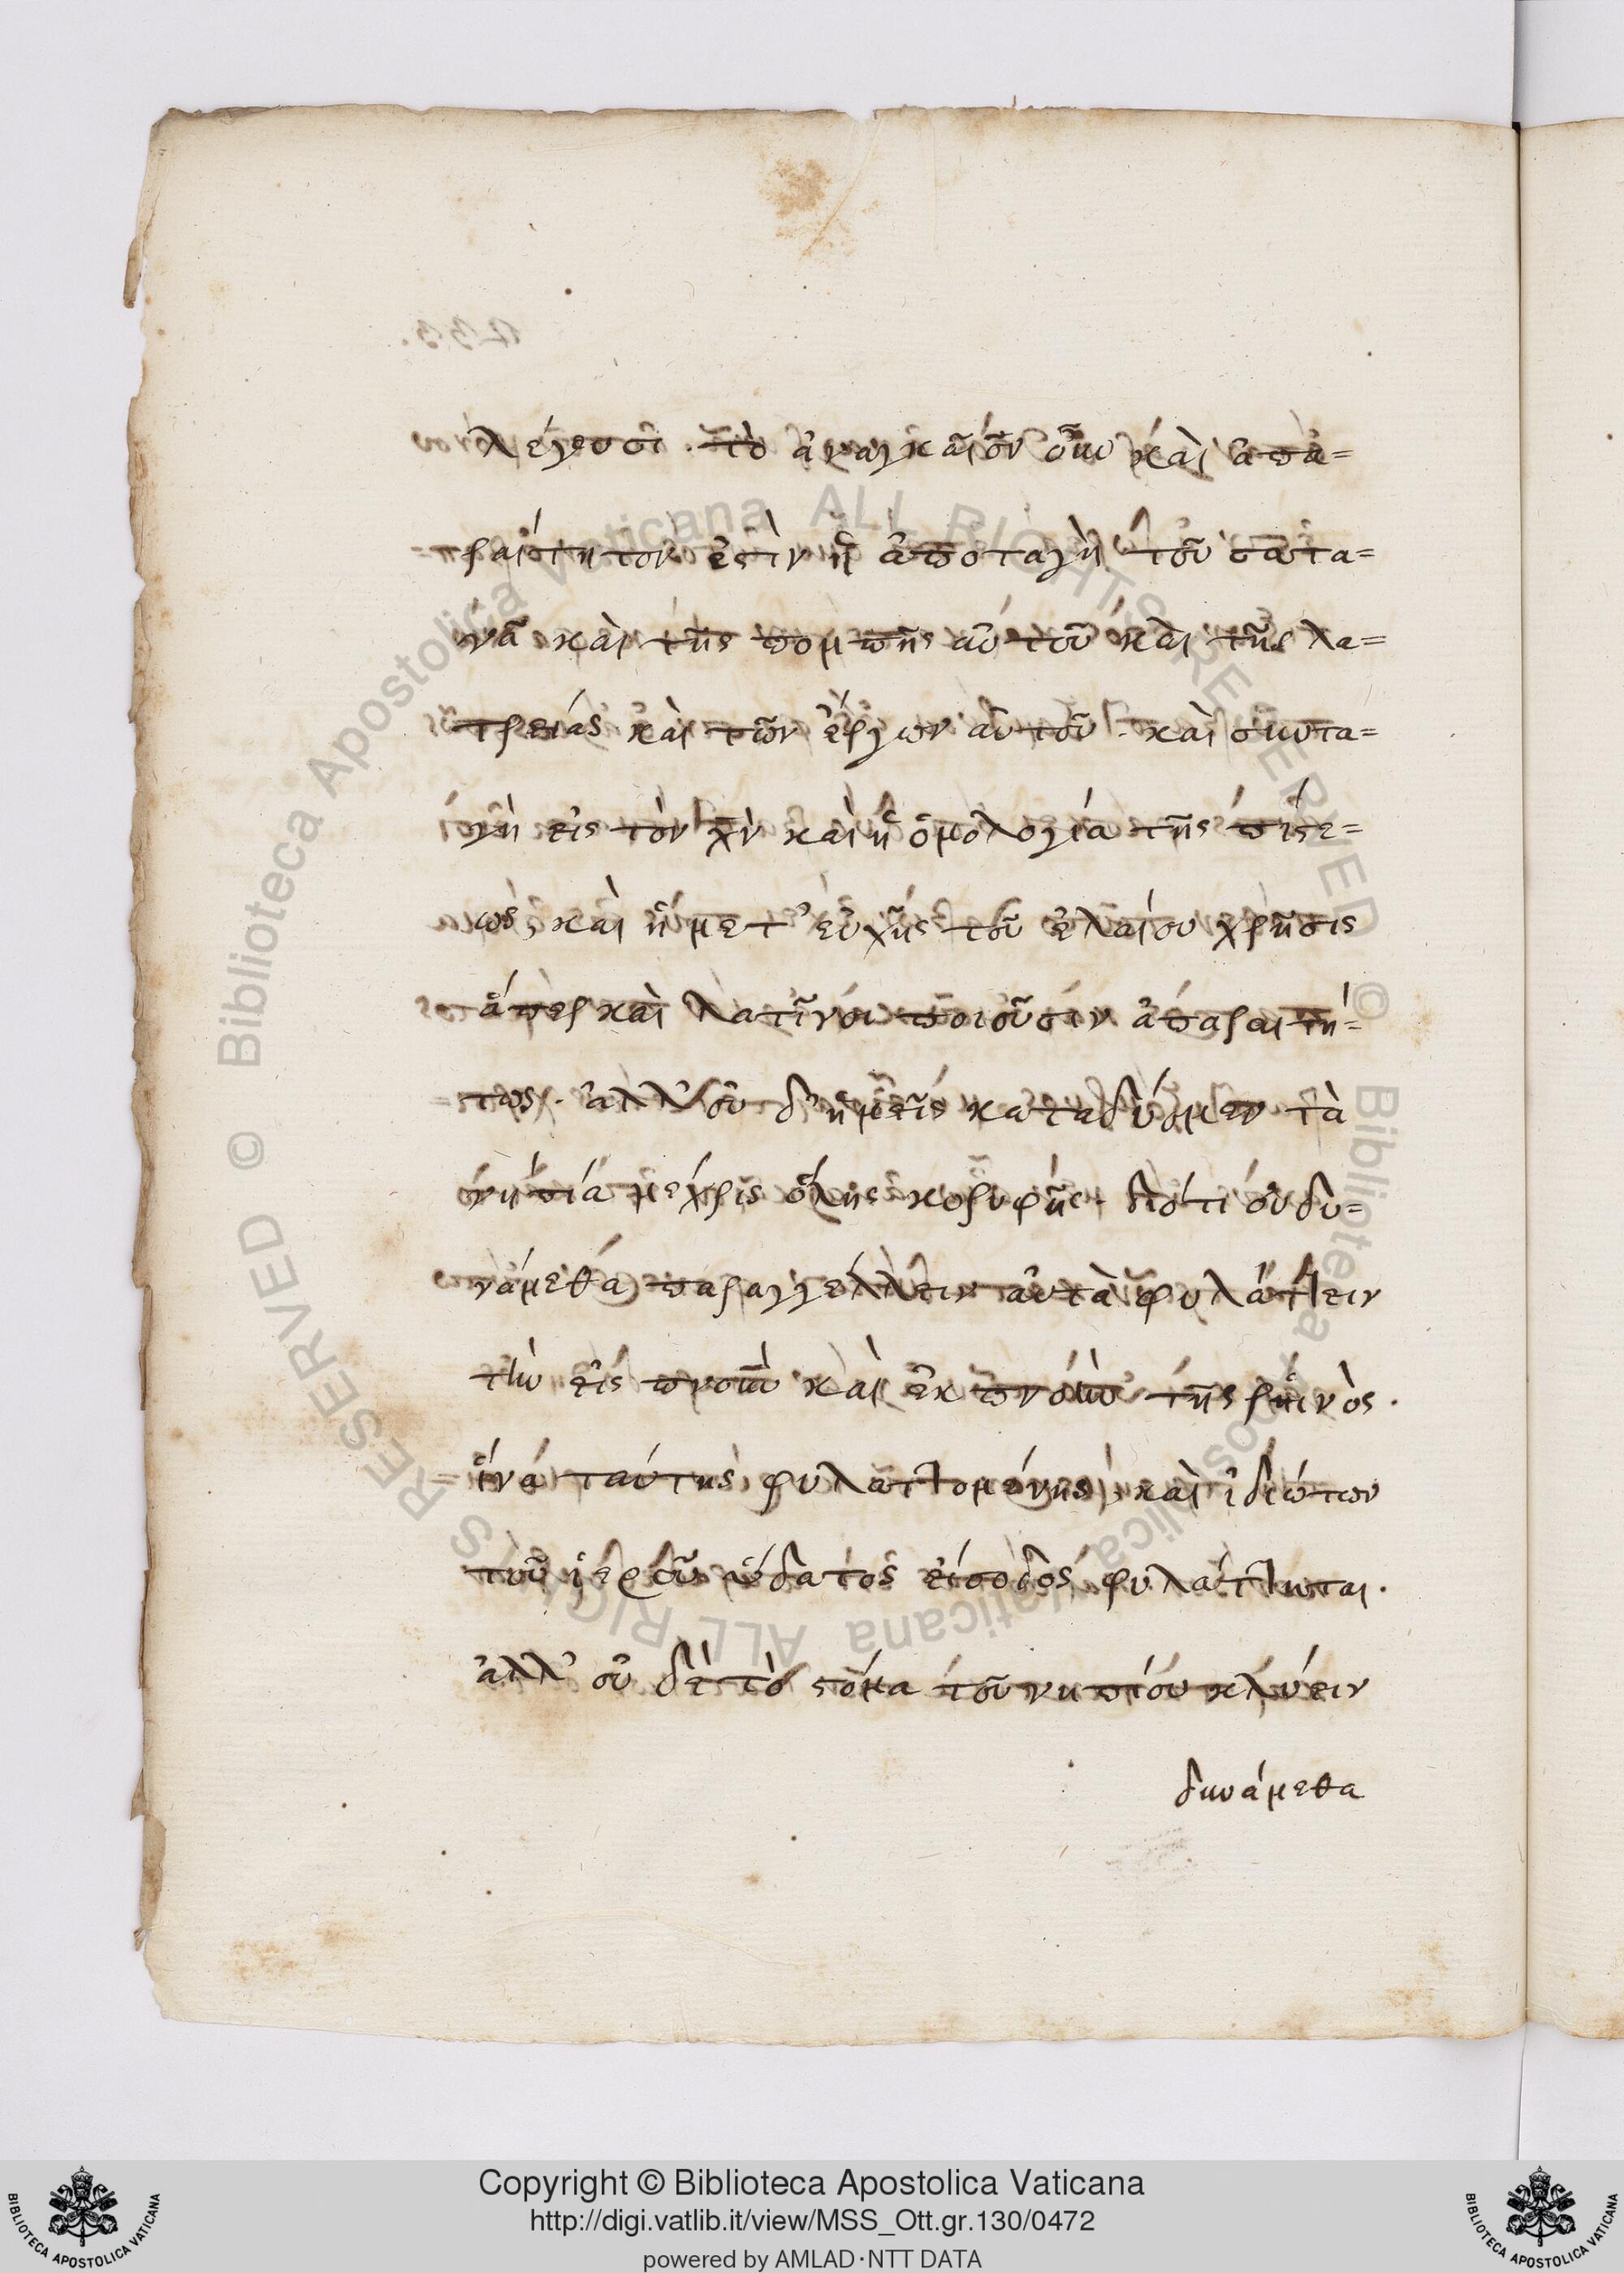 λέγουσι. τὸ ἀναγκαῖον οὖν καὶ ἀπα=
ραίτητον ἐστὶν ἡ ἀποταγὴ τοῦ σατα=
νᾶ καὶ τῆς πομπῆς αὐτοῦ καὶ τῆς λα=
τρείας καὶ τῶν ἔργων αὐτοῦ. καὶ συντα=
γὴ εἰς τὸν χν καὶ ἡ ὁμολογία τῆς πίστε=
ως, καὶ ἡ μετ' εὐχῆς τοῦ ἐλαίου χρῆσις
ἅπερ καὶ λατῖνοι ποιοῦσιν ἀπαραιτή=
τως. ἀλλ' οὐδ' ἡμεῖς καταδύομεν τὰ
νήπια μέχρις ὅλης κορυφῆς. διότι οὐ δυ=
νάμεθα παραγγέλλειν αὐτὰ φυλάττειν
τὴν εἰσπνοὴν καὶ ἐκπνοὴν τῆς ῥινὸς.
ἵνα ταύτης φυλαττομένης, καὶ ἰδιώτων
τοῦ ἱεροῦ ὕδατος εἴσοδος φυλάττηται.
ἀλλ' οὐδὲ τὸ στόμα τοῦ νηπίου κλύειν
δυνάμεθα
Copyright © Biblioteca Apostolica Vaticana
http://digi.vatlib.it/view/MSS_Ott.gr.130/0472
powered by AMLAD·NTT DATA
© Biblioteca Apostolica Vaticana ALL RIGHTS RESERVED
© Biblioteca Apostolica Vaticana ALL RIGHTS RESERVED
BIBLIOTECA APOSTOLICA VATICANA
BIBLIOTECA APOSTOLICA VATICANA